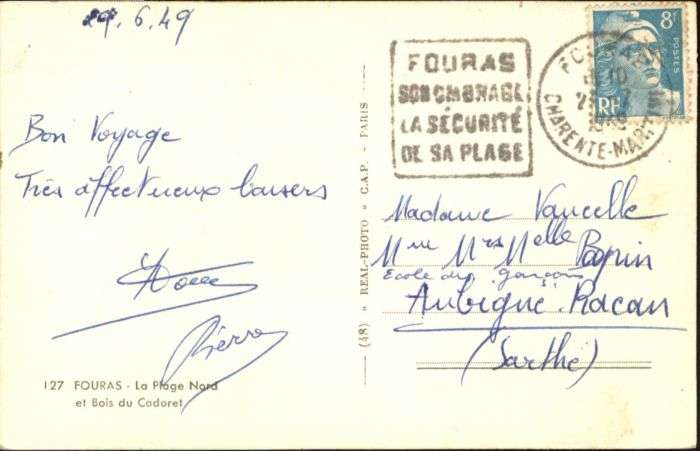 29.6.49
Bon Voyage
Très affectueux baisers
Pierre
127 FOURAS - La Plage Nord
et Bois du Cadoret
(48) * REAL-PHOTO * C.A.P. - PARIS
FOURAS
SON OMBRAGE
LA SÉCURITÉ
DE SA PLAGE
FOURAS
1949
CHARENTE-MARITIME
8F
POSTES
RF
Madame Vancelle
Mme Mrs Melle Papin
Ecole des garçons
Aubigné-Racan
(Sarthe)